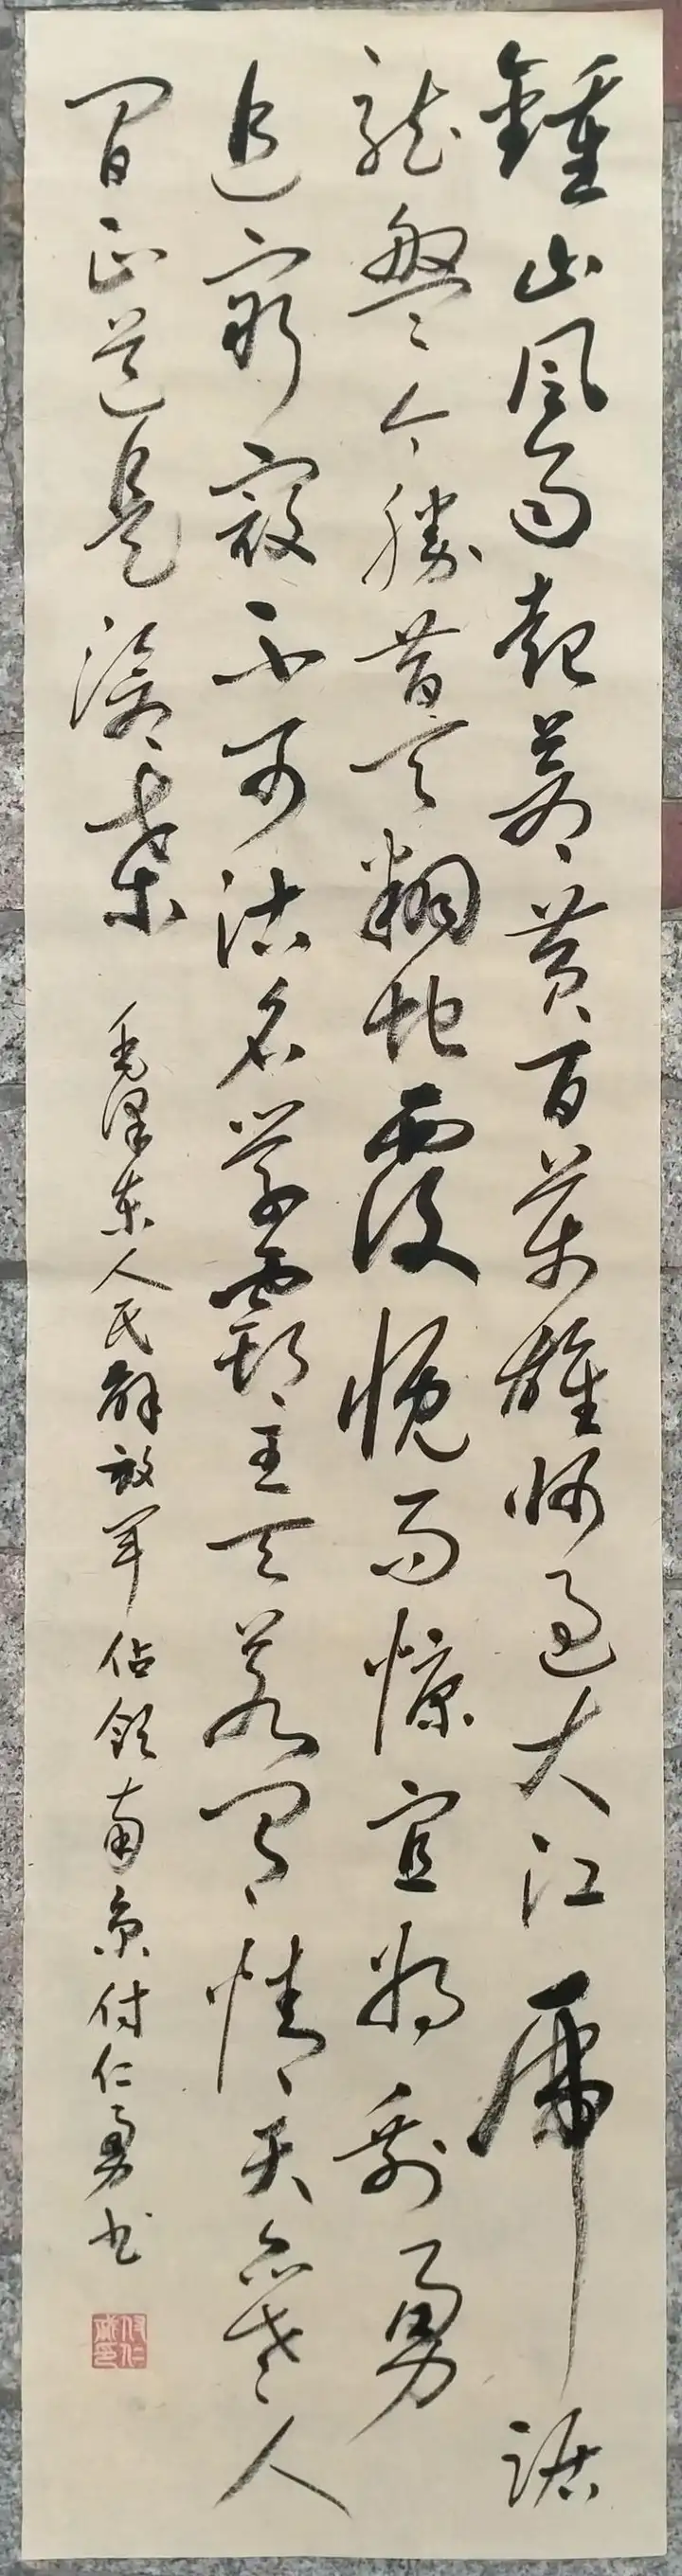 鍾山風雨起蒼黄百萬雄师過大江虎踞
龍盤今勝昔天翻地覆慨而慷宜将剩勇
追窮寇不可沽名学霸王天若有情天亦老人
間正道是滄桒 毛泽东人民解放军佔领南京付仁勇书